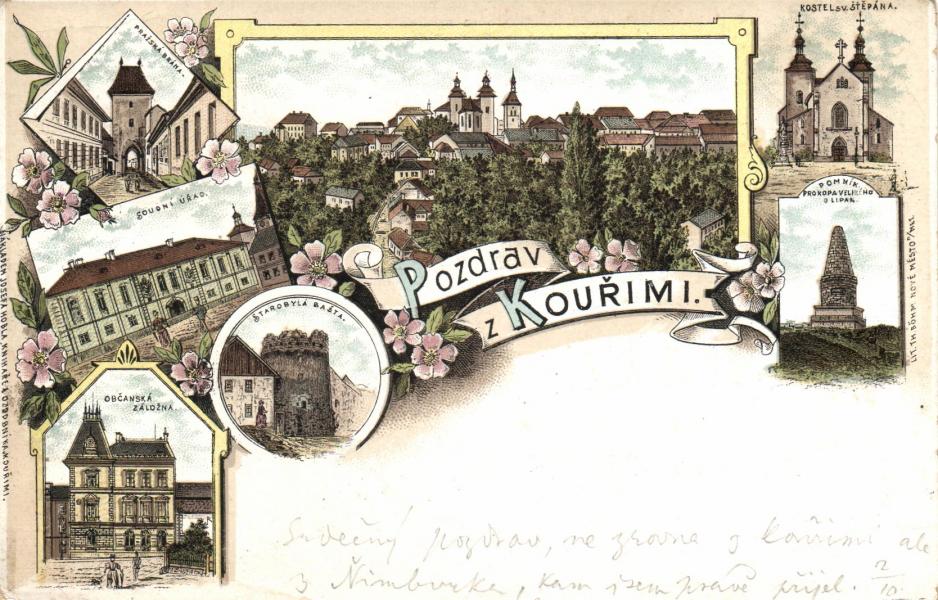 PRAŽSKÁ BRÁNA.
KOSTEL SV. ŠTĚPÁNA.
SOUDNÍ ÚŘAD.
POMNÍK
PROKOPA VELIKÉHO
U LIPAN.
Pozdrav
z KOUŘIMI.
STAROBYLÁ BAŠTA.
OBČANSKÁ
ZÁLOŽNA.
NÁKLADEM JOSEFA HOBLA, KNIHAŘE A OZDOBNÍKA V KOUŘIMI.
LIT. TH. BÖHM NOVÉ MĚSTO n/MET.
Srdečný pozdrav, ne zrovna z Kouřimi ale
z Nimburka, kam jsem právě přijel. 2/10.